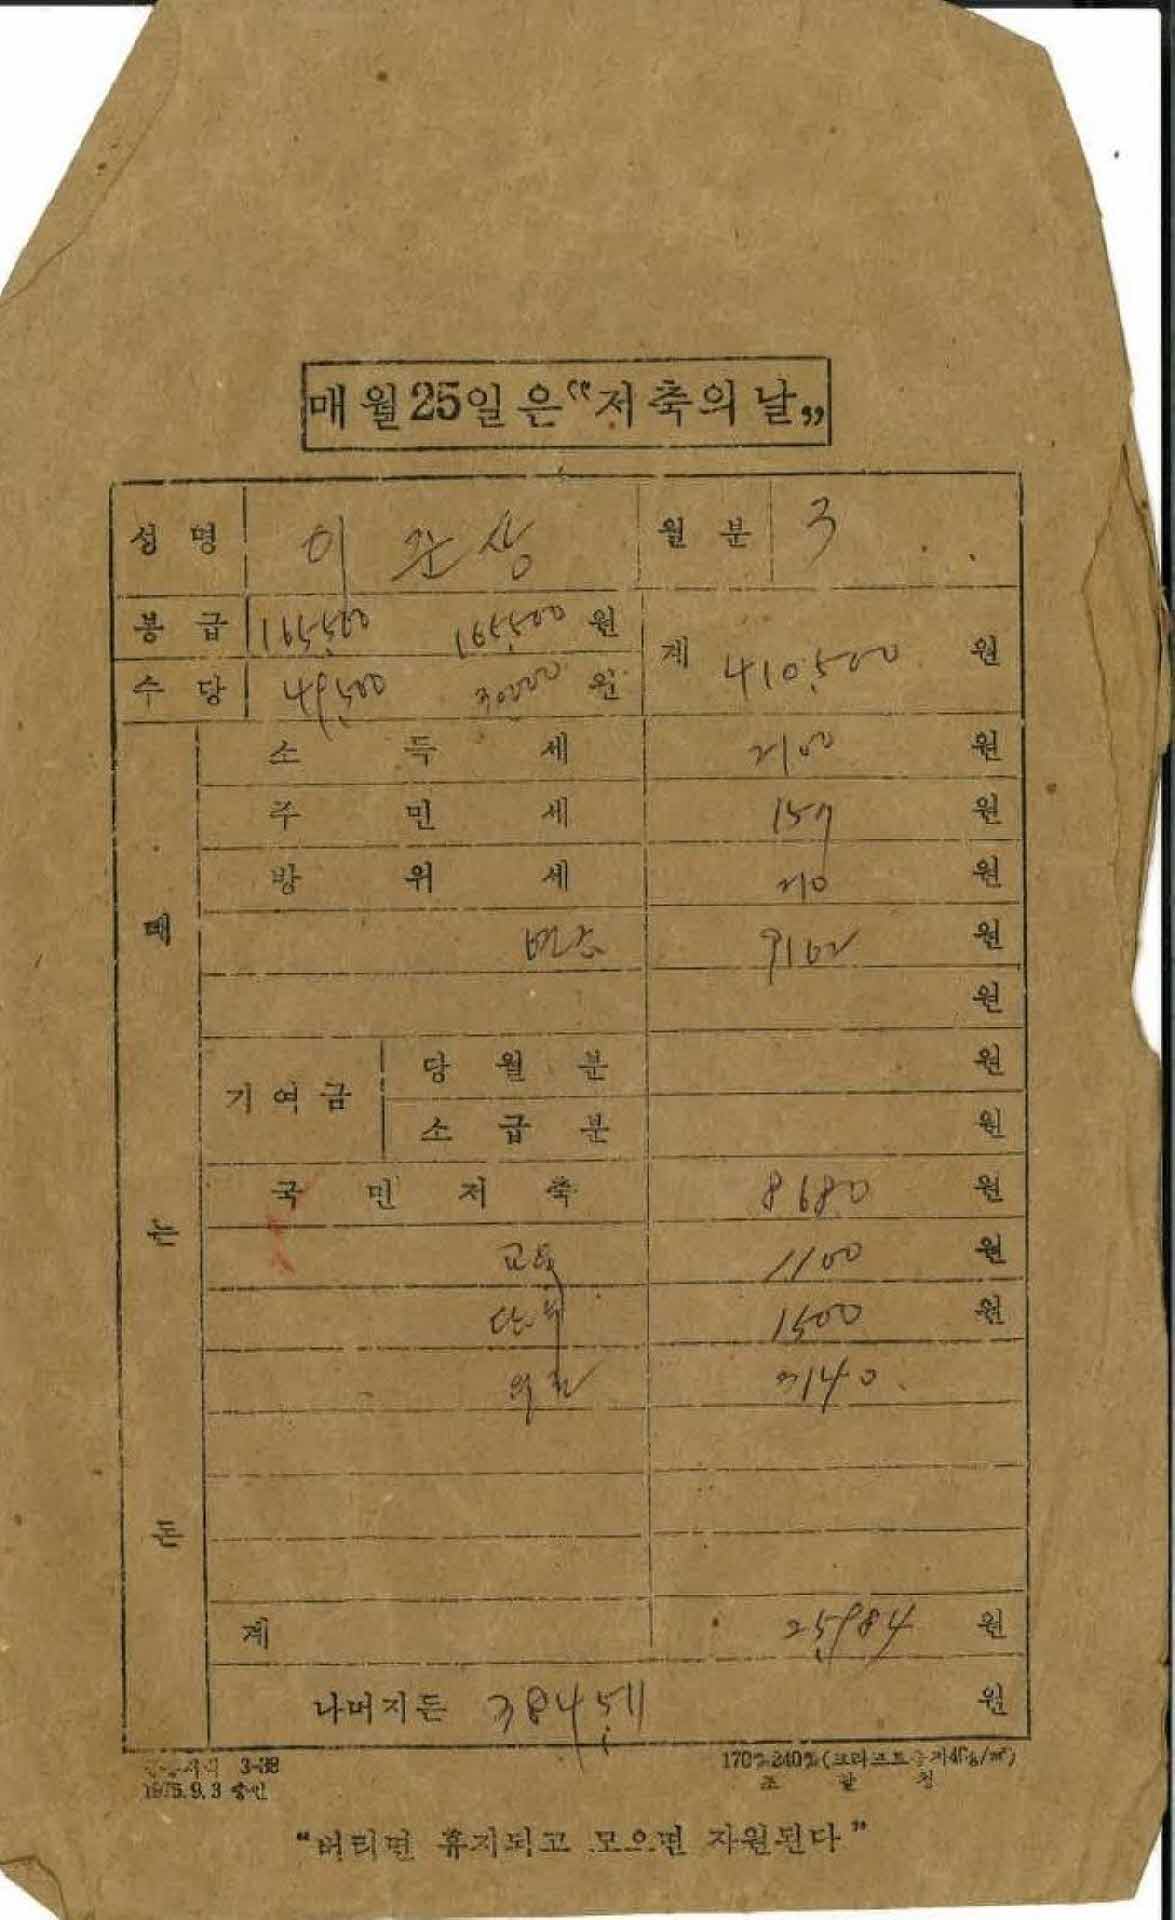 매월 25일은 “저축의 날”
성명 이 관상 월분 3
봉급 165,500 165,500 원
계 410,500 원
수당 49,500 30000 원
떼는돈
소득세 2100 원
주민세 157 원
방위세 210 원
9102 원
원
기여금 당월분 원
소급분 원
국민저축 8680 원
교육 1100 원
1500 원
3140
계 25,984 원
나머지돈 384,511 원
3-38 170%240%(크라프트 /㎡)
1975.9.3 승인 조달청
“버리면 휴지되고 모으면 자원된다”